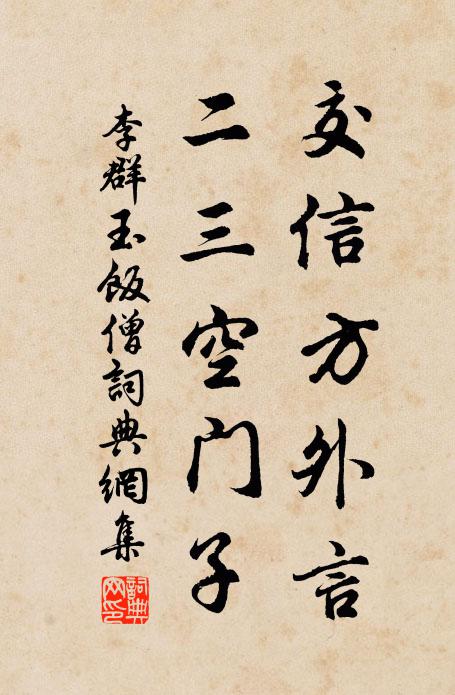 交信方外言
二三空门子
李群玉飯僧詞典網集
詞典網印